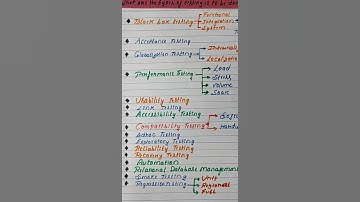 What are the types of testing is to be done
Black box testing
Functional
Integration
System
Acceptance Testing
Globalization Testing
Performance Testing
Load
Stress
Volume
Soak
Usability Testing
Link Testing
Accessibility Testing
Compatibility Testing
Adhoc Testing
Exploratory Testing
Reliability Testing
Recovery Testing
Automation
Relational Database Management
Smoke Testing
Regression Testing
Unit
Regional
Full